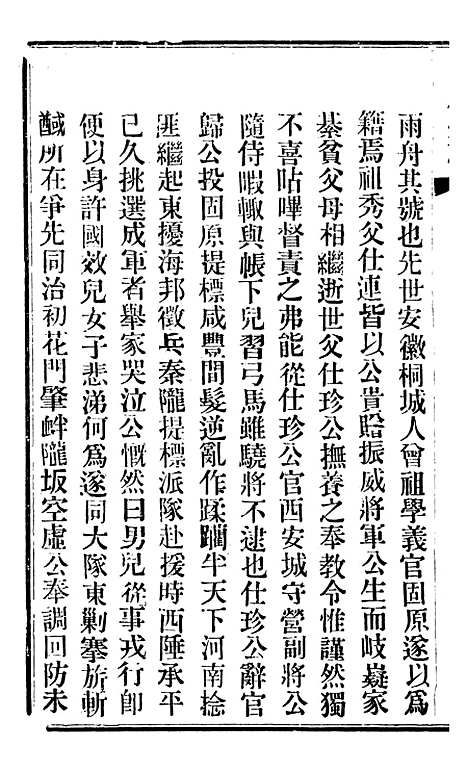 雨舟其號也先世安徽桐城人曾祖學義官固原遂以為
籍焉祖秀父仕連皆以公貴贈振威將軍公生而岐嶷家
綦貧父母相繼逝世父仕珍公撫養之奉教令惟謹然獨
不喜呫嗶督責之弗能從仕珍公官西安城守營副將公
隨侍暇輒與帳下兒習弓馬雖驍將不逮也仕珍公辭官
歸公投固原提標咸豐間髮逆亂作蹂躪半天下河南捻
匪繼起東擾海邦徵兵秦隴提標派隊赴援時西陲承平
已久挑選成軍者舉家哭泣公慨然曰男兒從事戎行卽
便以身許國效兒女子悲涕何為遂同大隊東剿搴旂斬
馘所在爭先同治初花門肇衅隴坂空虛公奉調回防未